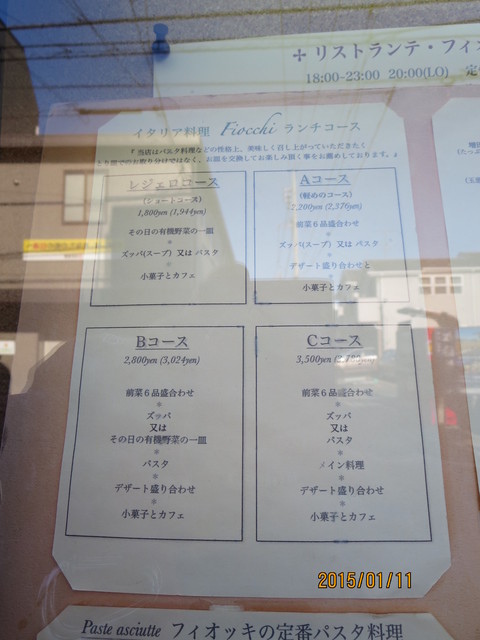 ✢ リストランテ・フィオ
18:00-23:00 20:00(LO) 定
イタリア料理 Fiocchi ランチコース
『当店はパスタ料理などの性格上、美味しく召し上がっていただきたく
お皿を交換してお楽しみ頂く事をお薦めしております。』
レジェロコース
(ショートコース)
1,800yen (1,944yen)
その日の有機野菜の一皿
*
ズッパ(スープ) 又は パスタ
*
小菓子とカフェ
Aコース
(軽めのコース)
2,200yen (2,376yen)
前菜6品盛合わせ
*
ズッパ(スープ) 又は パスタ
*
デザート盛り合わせと
*
小菓子とカフェ
Bコース
2,800yen (3,024yen)
前菜6品盛合わせ
*
ズッパ
又は
その日の有機野菜の一皿
*
パスタ
*
デザート盛り合わせ
*
小菓子とカフェ
Cコース
3,500yen
前菜6品盛合わせ
*
ズッパ
又は
パスタ
*
メイン料理
*
デザート盛り合わせ
*
小菓子とカフェ
2015/01/11
Paste asciutte フィオッキの定番パスタ料理